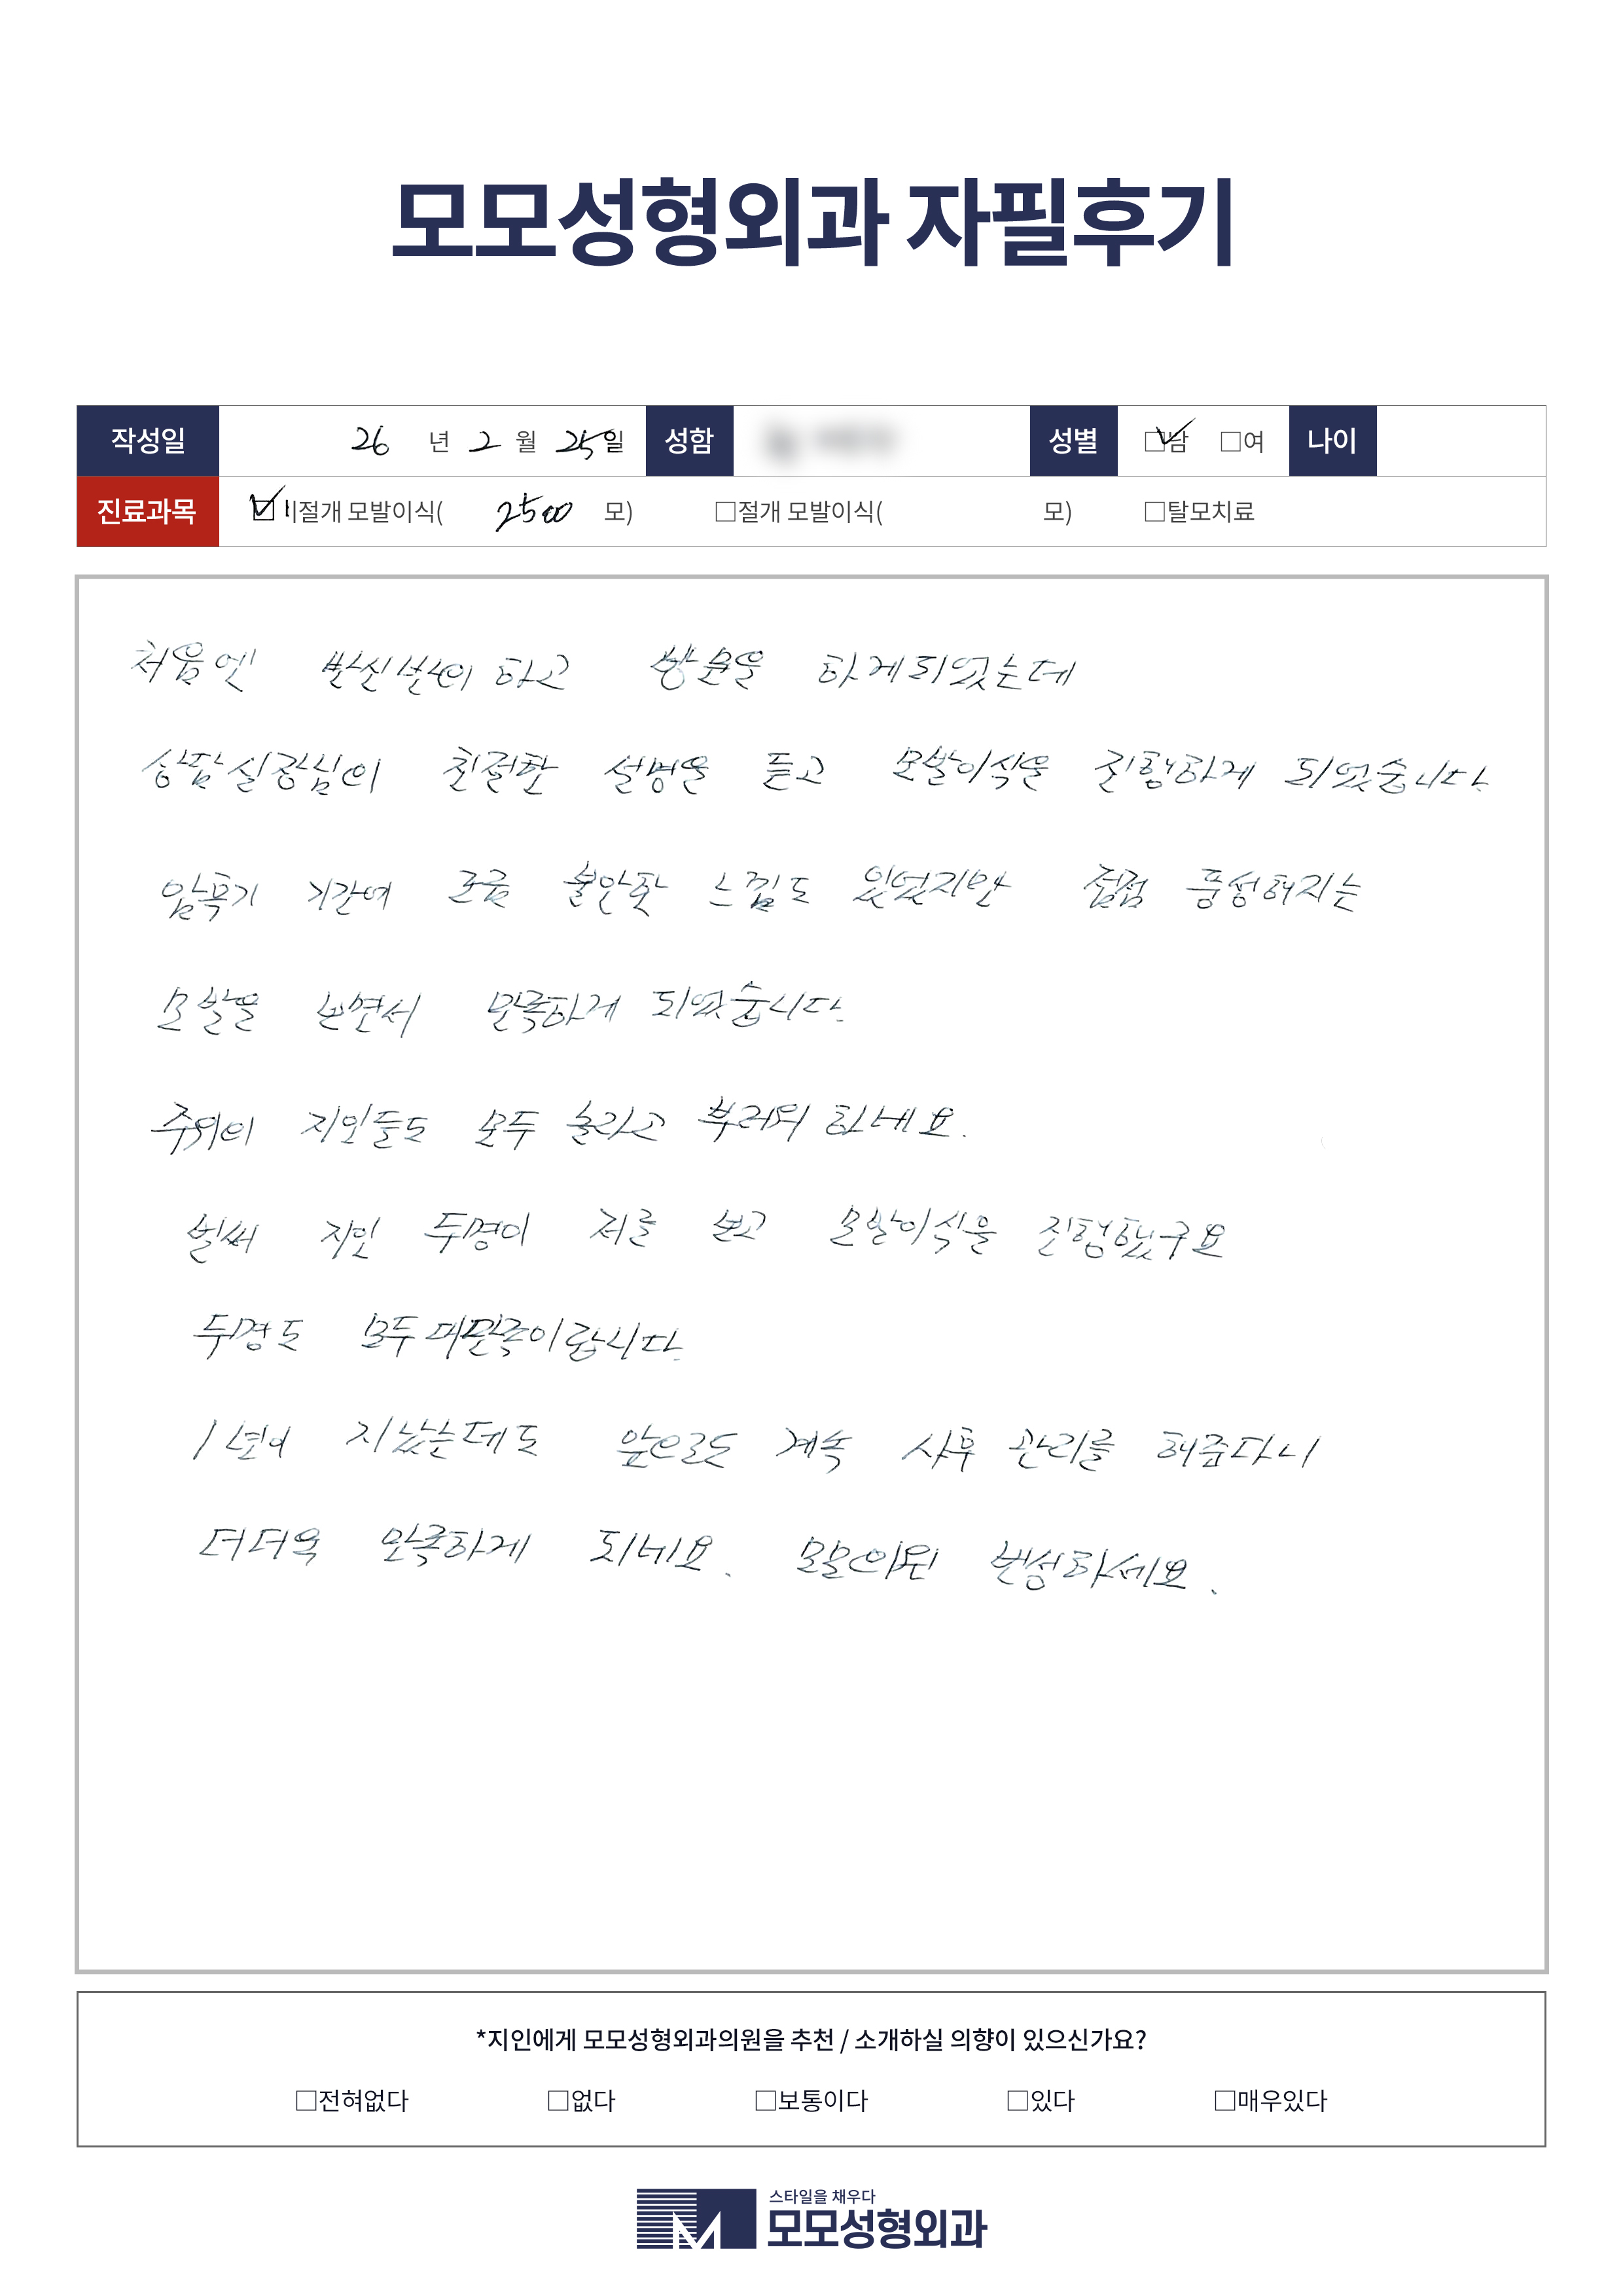 모모성형외과 자필후기
작성일 26 년 2 월 25 일 성함 성별 □남 □여 나이
진료과목 ☑비절개 모발이식( 2500 모) □절개 모발이식( 모) □탈모치료
처음엔 반신반의 하고 방문을 하게되었는데
상담실장님이 친절한 설명을 듣고 모발이식을 진행하게 되었습니다.
암흑기 기간에 조금 불안한 느낌도 있었지만 점점 풍성해지는
모발을 보면서 만족하게 되었습니다.
주위의 지인들도 모두 놀라고 부러워 하네요.
벌써 지인 두명이 저를 보고 모발이식을 진행했구요
두명도 모두 대만족이랍니다.
1년이 지났는데도 앞으로도 계속 사후 관리를 해준다니
더더욱 만족하게 되네요. 번성하세요.
*지인에게 모모성형외과의원을 추천 / 소개하실 의향이 있으신가요?
□전혀없다 □없다 □보통이다 □있다 □매우있다
스타일을 채우다
모모성형외과